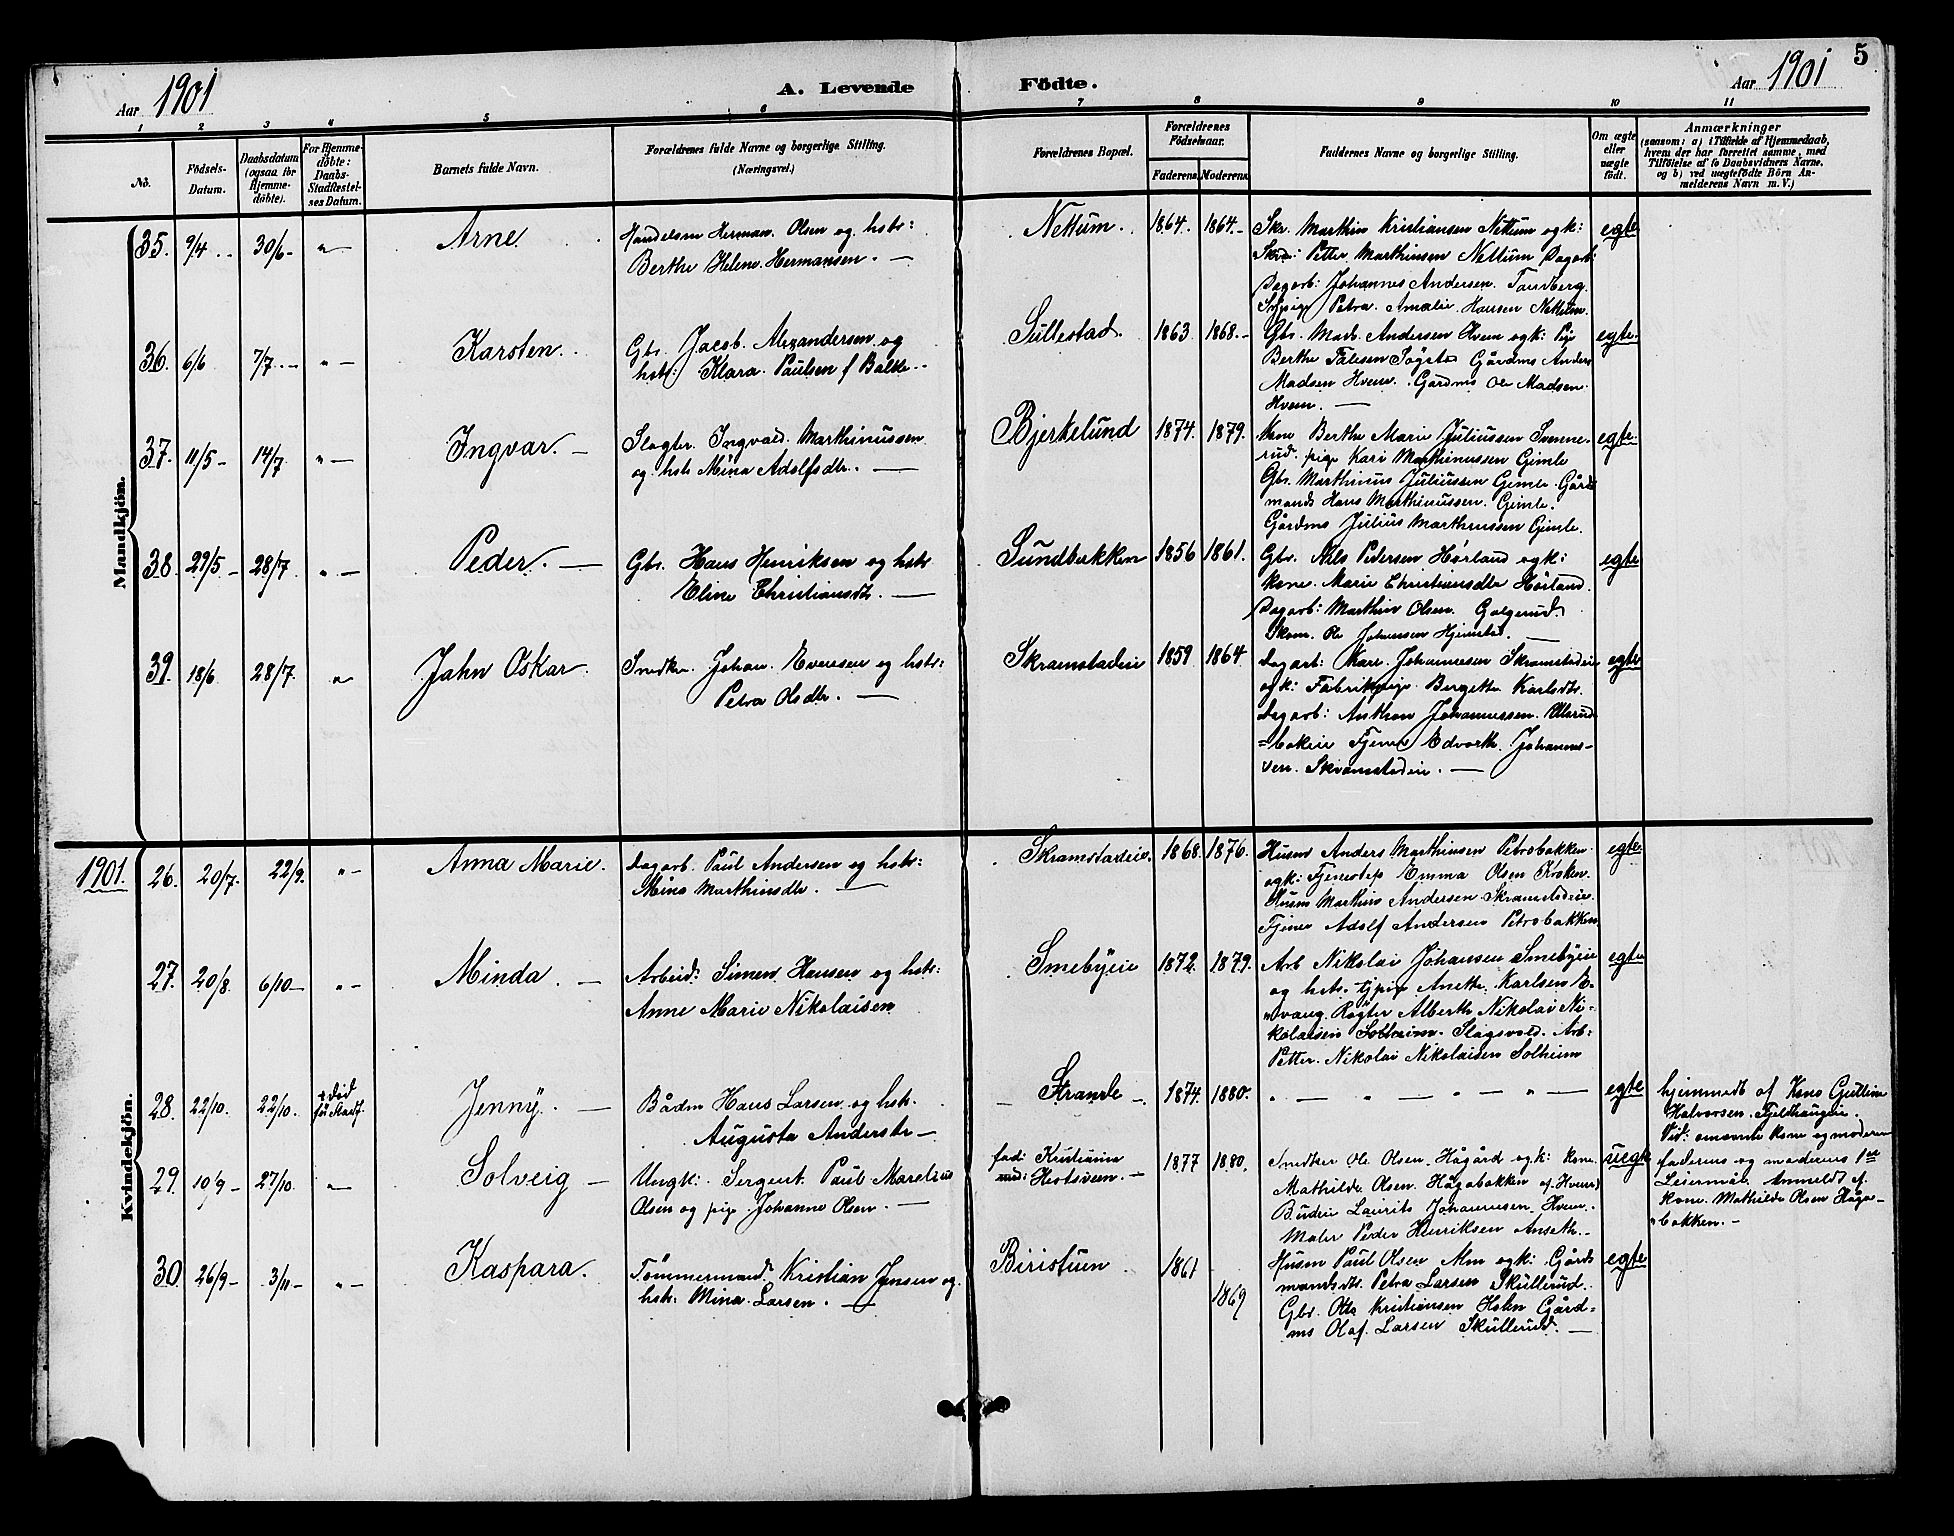 5
Aar 1901
A. Levende Födte.
Aar 1901
1 2 3 4 5 6 7 8 9 10 11
No.
Födsels-
Datum.
Daabsdatum
(ogsaa for
Hjemme-
döbte).
For Hjemme-
döbte:
Daabs-
Stadfæstel-
ses Datum.
Barnets fulde Navn.
Forældrenes fulde Navne og borgerlige Stilling.
(Næringsvei.)
Forældrenes Bopæl.
Forældrenes
Födselsaar.
Faderens. Moderens.
Faddernes Navne og borgerlige Stilling.
Om ægte
eller
uægte
födt.
Anmærkninger
(saasom: a) i Tilfælde af Hjemmedaab,
hvem der har forrettet samme, med
Tilföielse af to Daabsvidners Navne,
og b) ved uægtefödte Börn An-
melderens Navn m. V.)
Mandkjön.
35. 9/4 30/6 - „ -
Arne
Handelsm Herman Olsen og hstr:
Berthe Helene Hermansen. -
Nettum. 1864. 1864. -
Skr. Marthin Kristiansen Nettum og k:
Petter Marthinsen Nettum Dagarb:
Dagarb: Johannes Andersen. Tandberg.
Petra Amalie Hansen Nettum.
egte
36. 6/6 7/7 - „ -
Karsten.
Gbr. Jacob. Alexandersen og
hstr: Klara Paulsen f Balke. -
Sillestad. 1863 1868. -
Gbr. Mads. Andersen Hvem og k: Pige
Berthe Gårdms Anders
Madsen Hvem. Gårdms Ole Madsen.
Hvem. -
egte.
37. 11/5 - 14/7. „ -
Ingvar. -
Slagter. Ingvald. Marthinussen
og hstr Mina Adolfsdtr. -
Bjerkelund 1874. 1879.
Kone Berthe Marie Juliussen Svenne-
rud. pige Kari Marthinussen Gimle
Gbr. Marthinus Juliussen Gimle. Gård
mands Hans Marthinussen. Gimle.
Gårdms Julius Marthinussen Gimle.
egte.
38. 29/5 - 28/7. „ -
Peder. -
Gbr. Hans Henriksen og hstr
Eline Christiansdtr. -
Sundbakken 1856 1861.
Gbr. Nils Pedersen Hørland og k:
kone. Marie Christiansdtr Hørland.
Dagarb: Marthin Olsen. Galgerud.
Skom. Ole Johansen Hjemstad. -
egte
39. 18/6. 28/7. „
Jahn Oskar.
Snedker. Johan. Evensen og hstr:
Petra Olsdtr. -
Skramstadeie 1859 1864
Dagarb: Kare Johannesen Skramstadeie
og k: Fabrikpige Bergette Karlsdtr.
Dagarb: Anthon Johannessen.
=bakeie Tjener Edvarth. Johannes-
sen. Skramstadeie. -
egte
1901.
Kvindekjön.
26. 20/7. 22/9. „ -
Anna Marie.
Dagarb. Paul Andersen og hstr:
Mina Marthinsdtr. -
Skramstadeie. 1868. 1876.
Husm Anders Marthinsen Petrobakken
og k: Tjenestep Emma Olsen Kroken.
Husm Marthins Andersen Skramstadeie
Tjener Adolf Andersen Petrobakken
egte
27. 20/8. 6/10 - „ -
Minda. -
Arbeid: Simen Hansen og hstr:
Anne Marie Nikolaisen
Smebyeie 1872. 1879.
Arb Nikolai Johansen Smebyeie
og hstr. tjpige Anette. Karlsen E-
„vang. Røgter Alberth Nikolai Ni-
kolaisen Solheim. Slagsvold. Arb:
Petter. Nikolai Nikolaisen Solheim
egte
28. 22/10. 22/10. død
før Stadf.
Jenny. -
Bådm Hans Larsen og hstr.
Augusta Andersdtr -
- Strande -. 1874. 1880.
„ - „ - „ - „ -
egte
hjemmedbt af Kone Gulline
Halvorsen. Fjeldhaugeie.
Vid: omvante kone og moderen
29. 10/9 - 27/10. -
Solveig -
Ungk: Sergent. Paul Marelius
Olsen og pige. Johanne Olsen. -
fad: Kristiania
mod: Hestsveen. -
1877 1880.
Snedker Ole Olsen. Hågård og k: kone
Mathilde Olsen. Hågabakken af Hvem
Budeie Laurits Johannesen Hvem.
Maler Peder Henriksen Anseth. -
uegte
faderens og moderens 1ste
Leiermål. Anmeldt af
kone. Mathilde Olsen Håga-
„bakken. -
30. 26/9 - 3/11 - „ -
Kaspara.
Tømmermand. Kristian Jensen og
hstr: Mina Larsen. -
Biristuen. 1861 1869
Husm Paul Olsen Alm og k: Gårds
mandsdtr. Petra Larsen Skullerud.
Gbr. Otto Kristiansen Holen Gård=
ms Olaf. Larsen Skullerud. -
egte